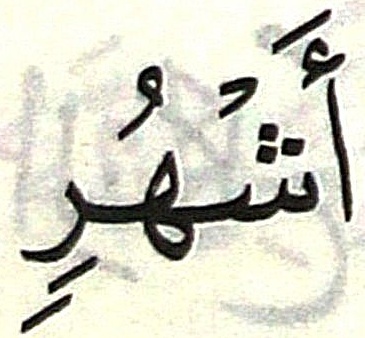 أَشْهُرٍ